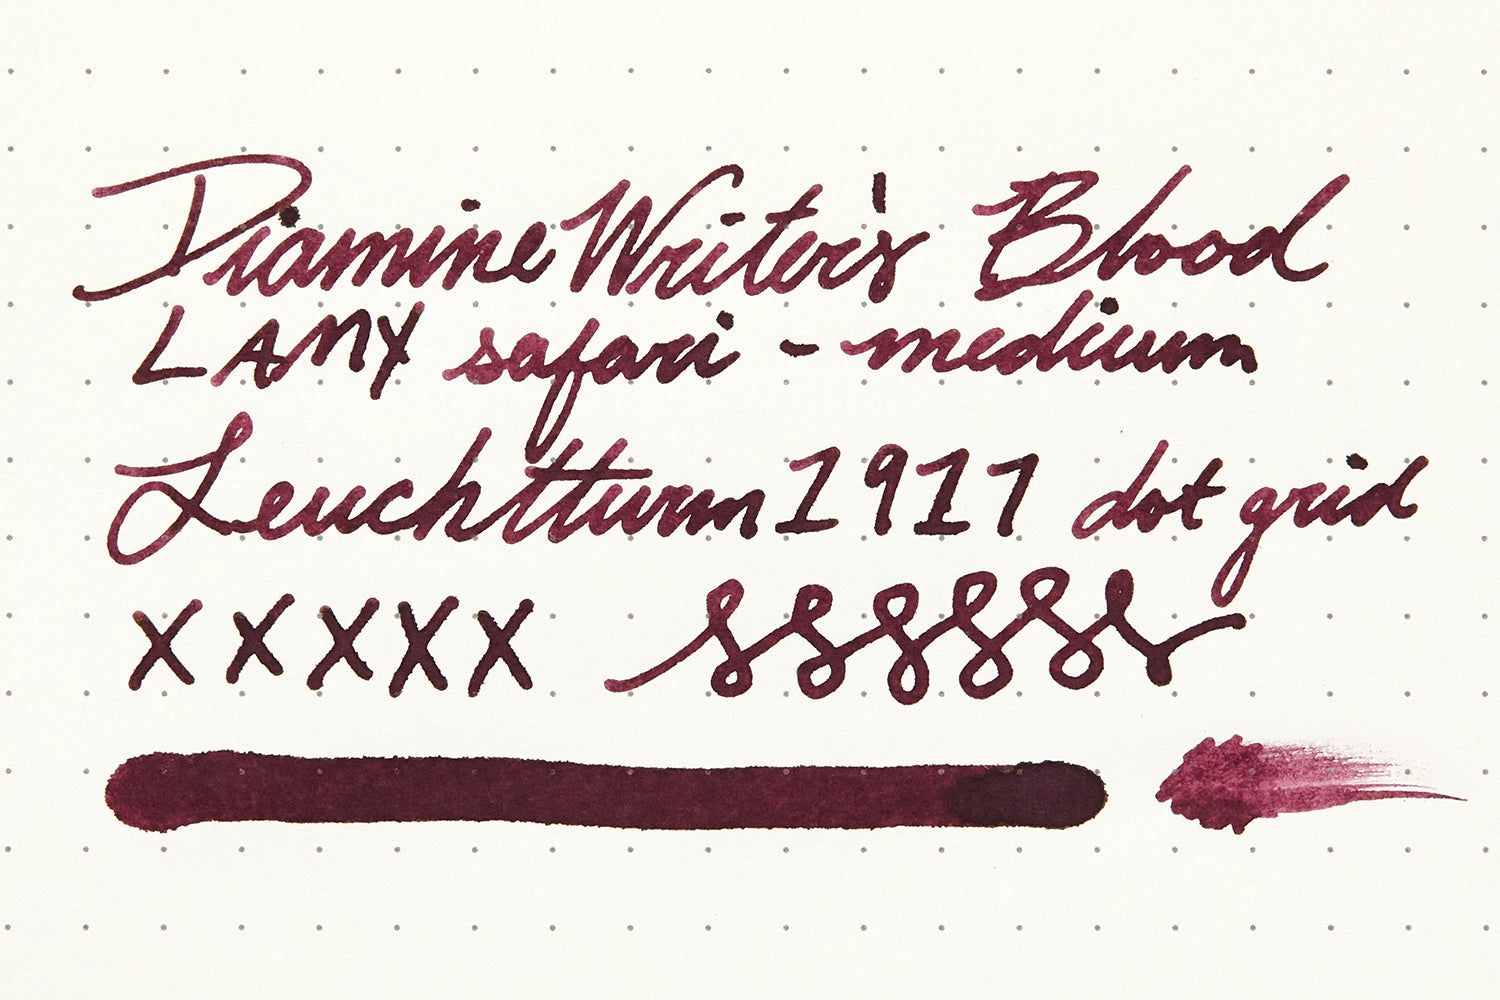 Diamine Writer's Blood
LAMY safari - medium
Leuchtturm1917 dot grid
x x x x x